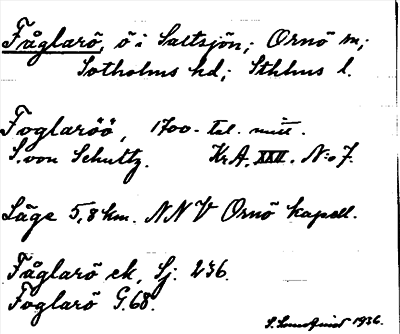 Fåglarö, ö i Saltsjön; Ornö sn;
Sotholms hd; Sthlms l.
Foglaröö, 1700-tal. mitt.
S. von Schultz. Kr.A. XXII. N:o 7.
Läge 5,8 km. NNV Ornö kapell.
Fåglarö ek, Sj. 236.
Foglarö G.68.
S. 1936.